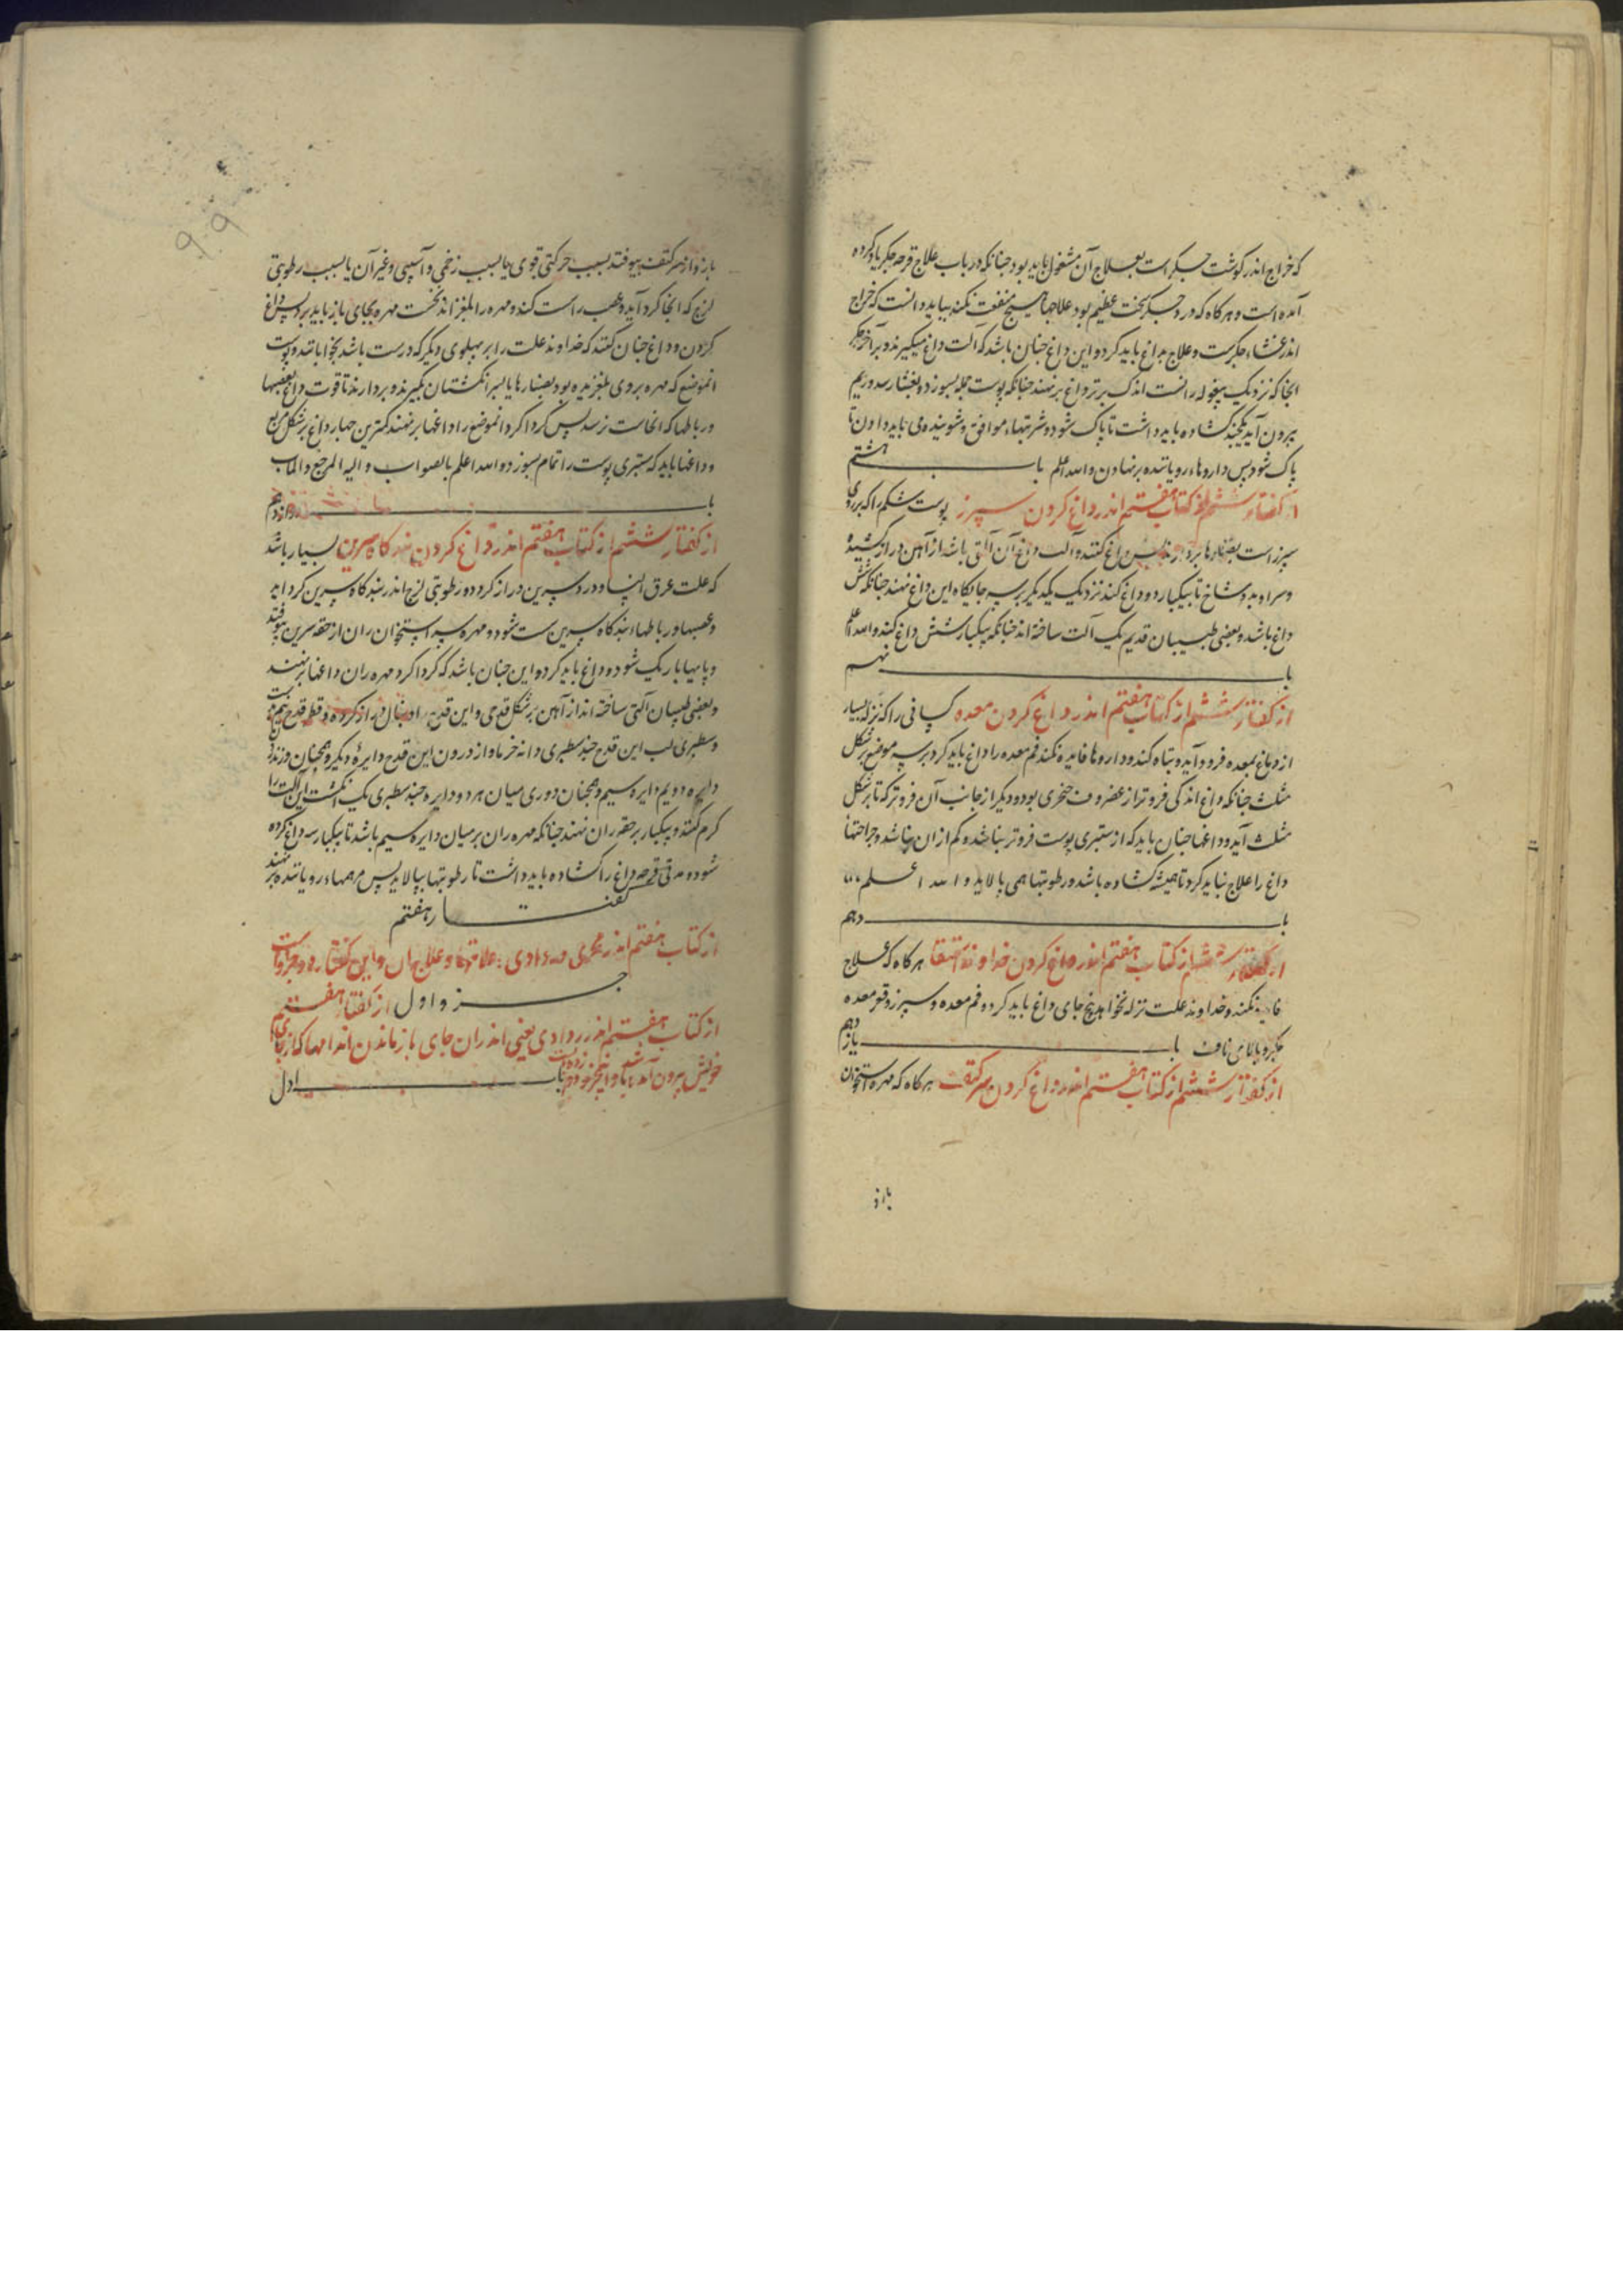 که خراج اندر گوشت جگر است بعلاج آن مشغول باید بود جنانکه در باب علاج قرحه جکر یاد کرده
آمده است و هرکاه که درد جکر سخت عظیم بود و علاجها هیچ منفعت نکند بباید دانست که خراج
اندر غشاء جکرست و علاج بداغ باید کرد و این داغ جنان باشد که آلت داغ میکیرند و بر آخر جکر
انجا که نزدیک بیغوله رانست اندک برتر داغ برنهند جنانکه پوست جمله بسوزد و بغشا رسد و ریم
بیرون آید یکجند کشاده باید داشت تا پاک شود و شربتهاء موافق و شوینده می باید داد تا
پاک شود پس داروهاء رویاننده برنهادن والله اعلم باب هشتم
از کفتار ششم از کتاب هفتم اندر داغ کردن سپرز پوست شکم را که بر روی
سپرز است بصنارها بردارند پس داغ کنند و آلت داغ آن آلتی باشد از آهن دراز کشیده
و سر او بدو شاخ تا بیکبار دو داغ کند نزدیک یکدیکر بر سه جایکاه این داغ نهند جنانکه شش
داغ باشد و بعضی طبیبان قدیم یک آلت ساخته اند جنانکه بیکبار شش داغ کند والله اعلم
باب نهم
از کفتار ششم از کتاب هفتم اندر داغ کردن معده کسانی را که نزله بسیار
از دماغ بمعده فرود آید و تباه کند و داروها فایده نکند فم معده را داغ باید کرد بر سه موضع بر شکل
مثلث جنانکه داغ اندکی فروتر از غضروف خنجری بود و دیکر از جانب آن فروتر که تا بر شکل
مثلث آید و داغها جنان باید که از ستبری پوست فروتر نباشد و کم از ان نباشد و جراحتهاء
داغ را علاج نباید کرد تا همیشه کشاده باشد و رطوبتها همی پالاید والله اعلم
باب دهم
از کفتار ششم از کتاب هفتم اندر داغ کردن خداوند استسقا هرکاه که علاج
فایده نکند و خداوند علت نزله نخواهد پنج جای داغ باید کرد و فم معده و سپرز و قعر معده
جکر و بالای ناف باب یازدهم
از کفتار ششم از کتاب هفتم اندر داغ کردن سر کتف هرکاه که مهره استخوان
بازو
بازو از سر کتف بیوفتد بسبب حرکتی قوی یا بسبب زخمی و آسیبی و غیر آن یا بسبب رطوبتی
لزج که انجا کرد آید و عصب راست کند و مهره را بلغزاند نخست مهره بجای باز باید برد پس داغ
کردن و داغ جنان کنند که خداوند علت را بر پهلوی دیکر که درست باشد بخوابانند و پوست
انموضع که مهره بروی بلغزیده بود بصنارها یا بسر انکشتان بکیرند و بردارند تا قوت داغ بعصبها
و رباطها که انجاست نرسد پس کرداکرد انموضع را داغها برنهند کمترین جهار داغ بر شکل مربع
و داغها باید که ستبری پوست را تمام بسوزد والله اعلم بالصواب والیه المرجع والماب
باب دوازدهم
از کفتار ششم از کتاب هفتم اندر داغ کردن بندکاه سرین بسیار باشد
که علت عرق النسا و درد سرین دراز کردد و رطوبتی لزج اندر بندکاه سرین کرد اید
و عصبها و رباطهاء بندکاه سرین سست شود و مهره سر استخوان ران از حقه سرین بیوفتد
و پایها باریک شود و داغ باید کرد و این جنان باشد که کرداکرد مهره ران داغها برنهند
و بعضی طبیبان آلتی ساخته اند از آهن بر شکل قدحی و این قدح را دنبال دراز کرده و قطر قدح نیم بدست
و سطبری لب این قدح جند سطبری دانه خرما و از درون این قدح دایرهٔ دیکر و همجنان و زندرون
دایره دویم دایره سیم و همجنان دوری میان هر دو دایره جند سطبری یک انکشت این آلت را
کرم کنند و بیکبار بر حقه ران نهند جنانکه مهره ران بر میان دایره سیم باشد تا بیکبار سه داغ کرده
شود و مدتی قرحه داغ را کشاده باید داشت تا رطوبتها بپالاید پس مرهمهاء رویاننده برنهند
کفتار هفتم
از کتاب هفتم اندر و علاج ان و این کفتار دو جزو است
جزو اول از کفتار هفتم
از کتاب هفتم اندر ردادی یعنی اندر ان جای باز ماندن اندامها که از جای
خویش بیرون آمده باشد و این جزو باب اول